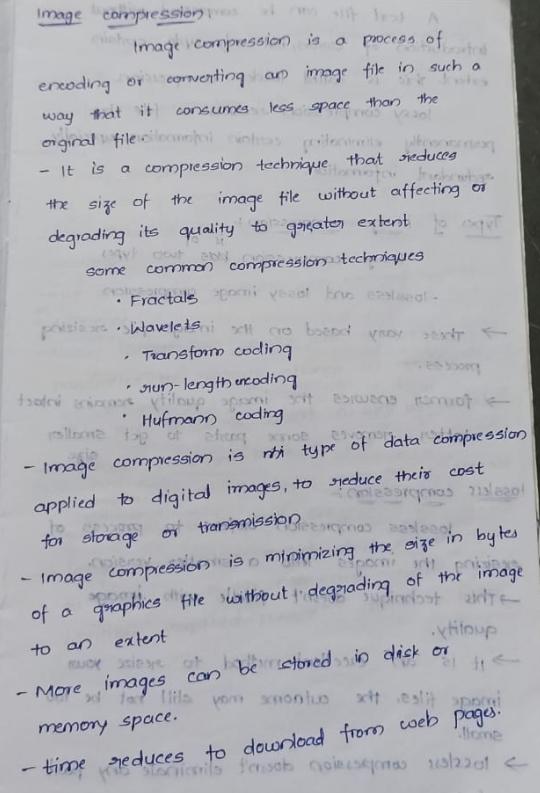 Image compression:
Image compression is a process of
encoding or converting an image file in such a
way that it consumes less space than the
original file
- It is a compression technique that reduces
the size of the image file without affecting or
degrading its quality to greater extent
some common compression techniques
• Fractals
• Wavelets
• Transform coding
• run-length encoding
• Hufmann coding
- Image compression is type of data compression
applied to digital images, to reduce their cost
for storage or transmission
- Image compression is minimizing the size in bytes
of a graphics file without degrading of the image
to an extent
- More images can be stored in disk or
memory space.
- time reduces to download from web pages.